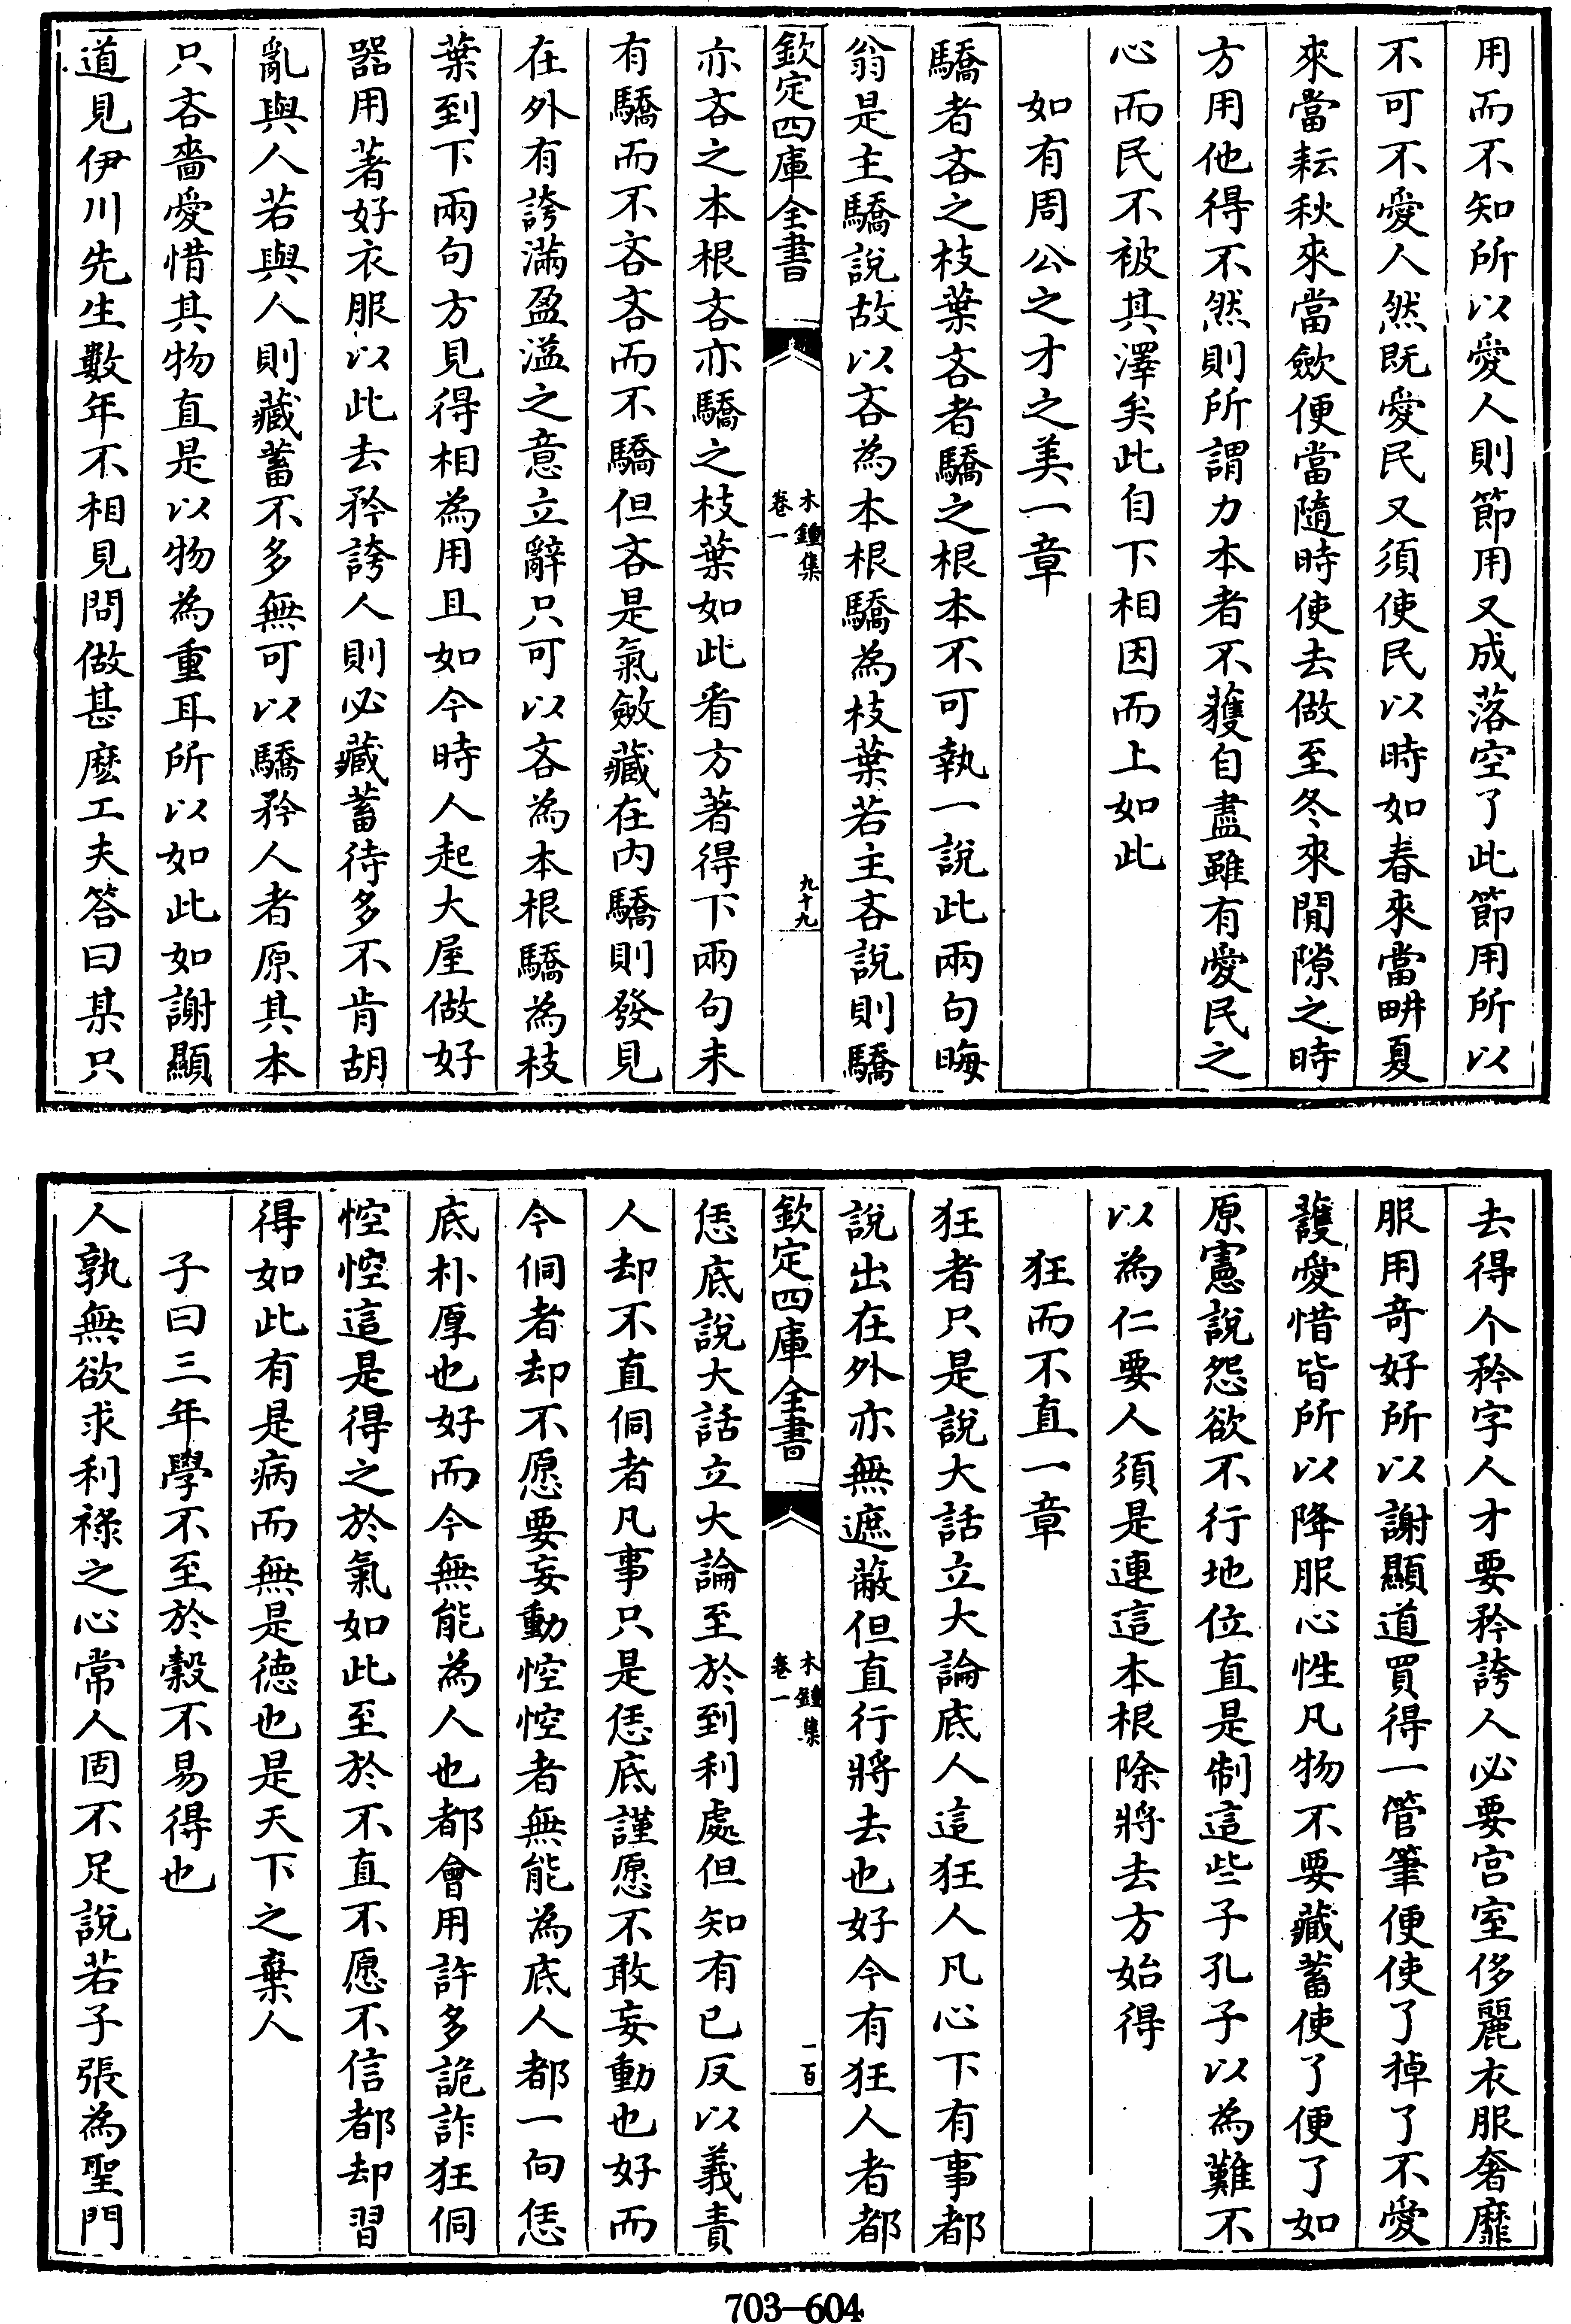 用而不知所以愛人則節用又成落空了此節用所以
不可不愛人然既愛民又須使民以時如春來當畊夏
來當耘秋來當斂便當隨時使去做至冬來閒隙之時
方用他得不然則所謂力本者不獲自盡雖有愛民之
心而民不被其澤矣此自下相因而上如此
如有周公之才之美一章
驕者吝之枝葉吝者驕之根本不可執一說此兩句晦
翁是主驕說故以吝為本根驕為枝葉若主吝說則驕
欽定四庫全書
木鍾集
卷一
九十九
亦吝之本根吝亦驕之枝葉如此看方著得下兩句未
有驕而不吝吝而不驕但吝是氣斂藏在內驕則發見
在外有誇滿盈溢之意立辭只可以吝為本根驕為枝
葉到下兩句方見得相為用且如今時人起大屋做好
器用著好衣服以此去矜誇人則必藏蓄待多不肯胡
亂與人若與人則藏蓄不多無可以驕矜人者原其本
只吝嗇愛惜其物直是以物為重耳所以如此如謝顯
道見伊川先生數年不相見問做甚麽工夫答曰某只
去得个矜字人才要矜誇人必要宮室侈麗衣服奢靡
服用奇好所以謝顯道買得一管筆便使了掉了不愛
護愛惜皆所以降服心性凡物不要藏蓄使了便了如
原憲說怨欲不行地位直是制這些子孔子以為難不
以為仁要人須是連這本根除將去方始得
狂而不直一章
狂者只是說大話立大論底人這狂人凡心下有事都
說出在外亦無遮蔽但直行將去也好今有狂人者都
欽定四庫全書
木鍾集
卷一
一百
恁底說大話立大論至於到利處但知有已反以義責
人却不直侗者凡事只是恁底謹愿不敢妄動也好而
今侗者却不愿要妄動悾悾者無能為底人都一向恁
底朴厚也好而今無能為人也都會用許多詭詐狂侗
悾悾這是得之於氣如此至於不直不愿不信都却習
得如此有是病而無是德也是天下之棄人
子曰三年學不至於穀不易得也
人孰無欲求利祿之心常人固不足說若子張為聖門
703—604